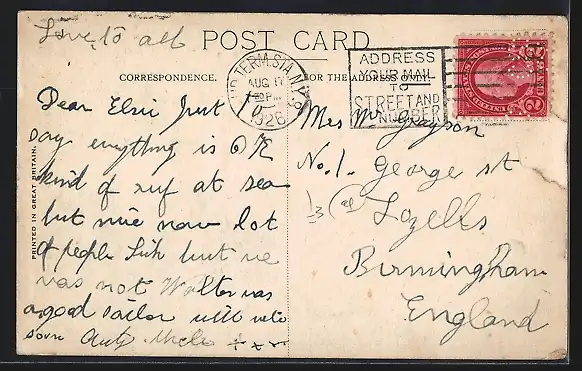 Love to all
POST CARD
CORRESPONDENCE.
FOR THE ADDRESS ONLY.
PRINTED IN GREAT BRITAIN.
TERM. STA. N.Y.
AUG 17
1926
ADDRESS
YOUR MAIL
TO
STREET AND
NUMBER
Dear Elsie Just
say everything is OK
kind of ruf at sea
but nice now lot
of people Sick but we
was not Walter was
a good sailor will write
soon Auty Uncle + x x
Mrs W Grayson
No. 1. George st
Lozells
Birmingham
England